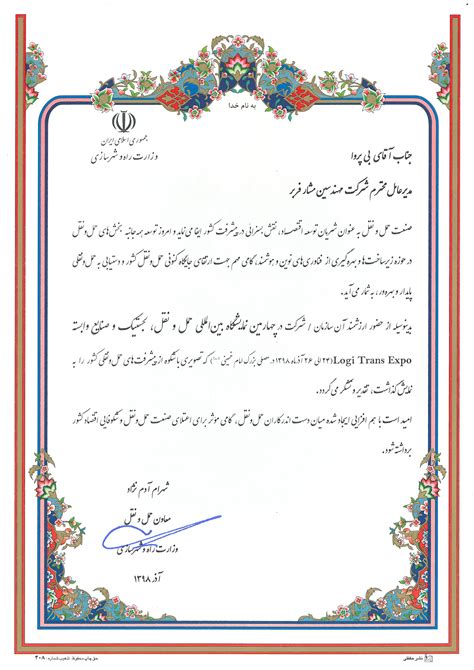 به نام خدا
جمهوری اسلامی ایران
وزارت راه و شهرسازی
جناب آقای بی پروا
مدیرعامل محترم شرکت مهندسین مشار فربر
صنعت حمل و نقل به عنوان شریان توسعه اقتصاد، نقش بسزایی در پیشرفت کشور ایفا می‌نماید و امروز توسعه همه جانبه بخش‌های حمل و نقل
در حوزه زیرساخت‌ها و بهره گیری از فناوری‌های نوین و هوشمند، گامی مهم جهت ارتقای جایگاه کنونی حمل و نقل کشور و دستیابی به حمل و نقلی
پایدار و بهره‌ور، به شمار می آید.
بدینوسیله از حضور ارزشمند آن سازمان / شرکت در چهارمین نمایشگاه بین‌المللی حمل و نقل، لجستیک و صنایع وابسته
Logi Trans Expo (۲۴ الی ۲۶ آذرماه ۱۳۹۸ در مصلی بزرگ امام خمینی) که تصویری باشکوه از پیشرفت های حمل و نقلی کشور را به
نمایش گذاشت، تقدیر و تشکر می گردد.
امید است با هم افزایی ایجاد شده میان دست اندرکاران حمل و نقل، گامی موثر برای اعتلای صنعت حمل و نقل و شکوفایی اقتصاد کشور
برداشته شود.
شهرام آدم نژاد
معاون حمل و نقل
وزارت راه و شهرسازی
آذر ۱۳۹۸
حق چاپ محفوظ. تذهیب شماره: ۴۰۸